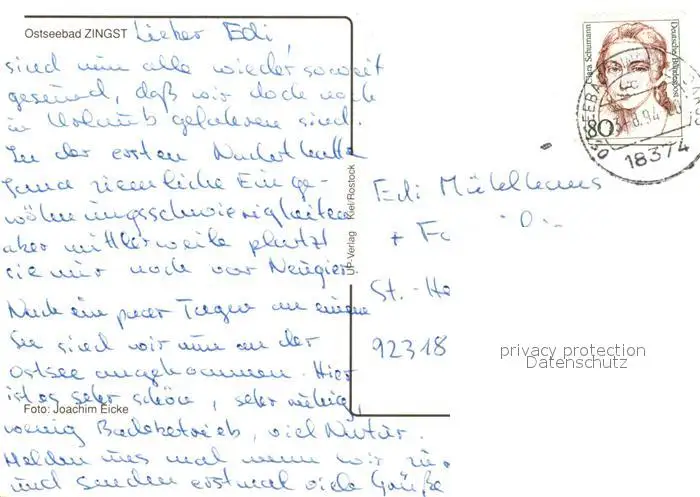 Ostseebad ZINGST
Lieber Edi,
sind nun alle wieder soweit
gesund, daß wir doch noch
in Urlaub gefahren sind.
In der ersten Nacht hatte
Jana ziemliche Einge-
wöhnungsschwierigkeiten
aber mittlerweile platzt
sie nur noch vor Neugier.
Nach ein paar Tagen an einem
See sind wir nun an der
Ostsee angekommen. Hier
ist es sehr schön, sehr ruhig,
wenig Badebetrieb, viel Natur.
Melden uns mal wenn wir
und senden erstmal viele Grüße
Foto: Joachim Eicke
UP-Verlag Kiel/Rostock
Clara Schumann
Deutsche Bundespost
80
OSTSEEBAD
8.94
18374
Edi Mühlhaus
+ Fa
St.-He
92318
privacy protection
Datenschutz